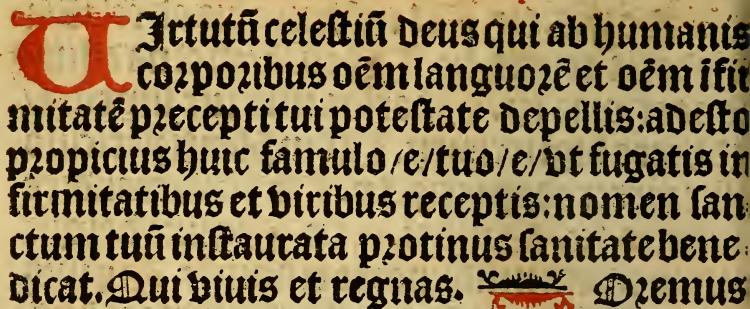 UIrtutū celestiū deus qui ab humanis
corporibus oēm languorē et oēm īfir
mitatē precepti tui potestate depellis: adesto
propicius huic famulo /e/ tuo /e/ vt fugatis in
firmitatibus et viribus receptis: nomen san
ctum tuū instaurata protinus sanitate bene
dicat. Qui viuis et regnas. Oremus